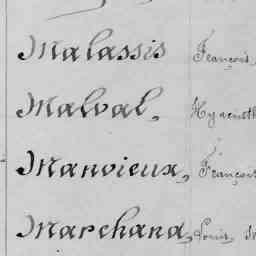 Malassis François
Malval, Hyacinth
Manvieux, François
Marchand, Louis